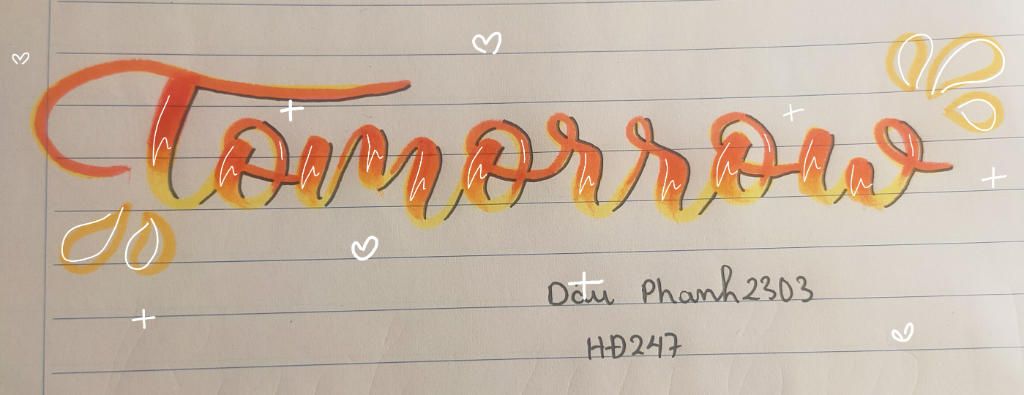 Tomorrow
Phanh2303
HĐ247